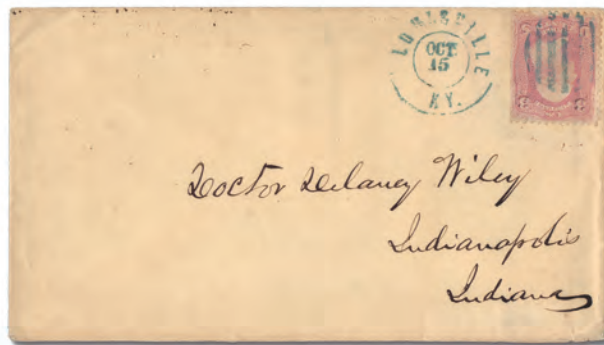 LOUISVILLE
OCT.
15
KY.
Doctor Delaney Wiley
Indianapolis
Indiana